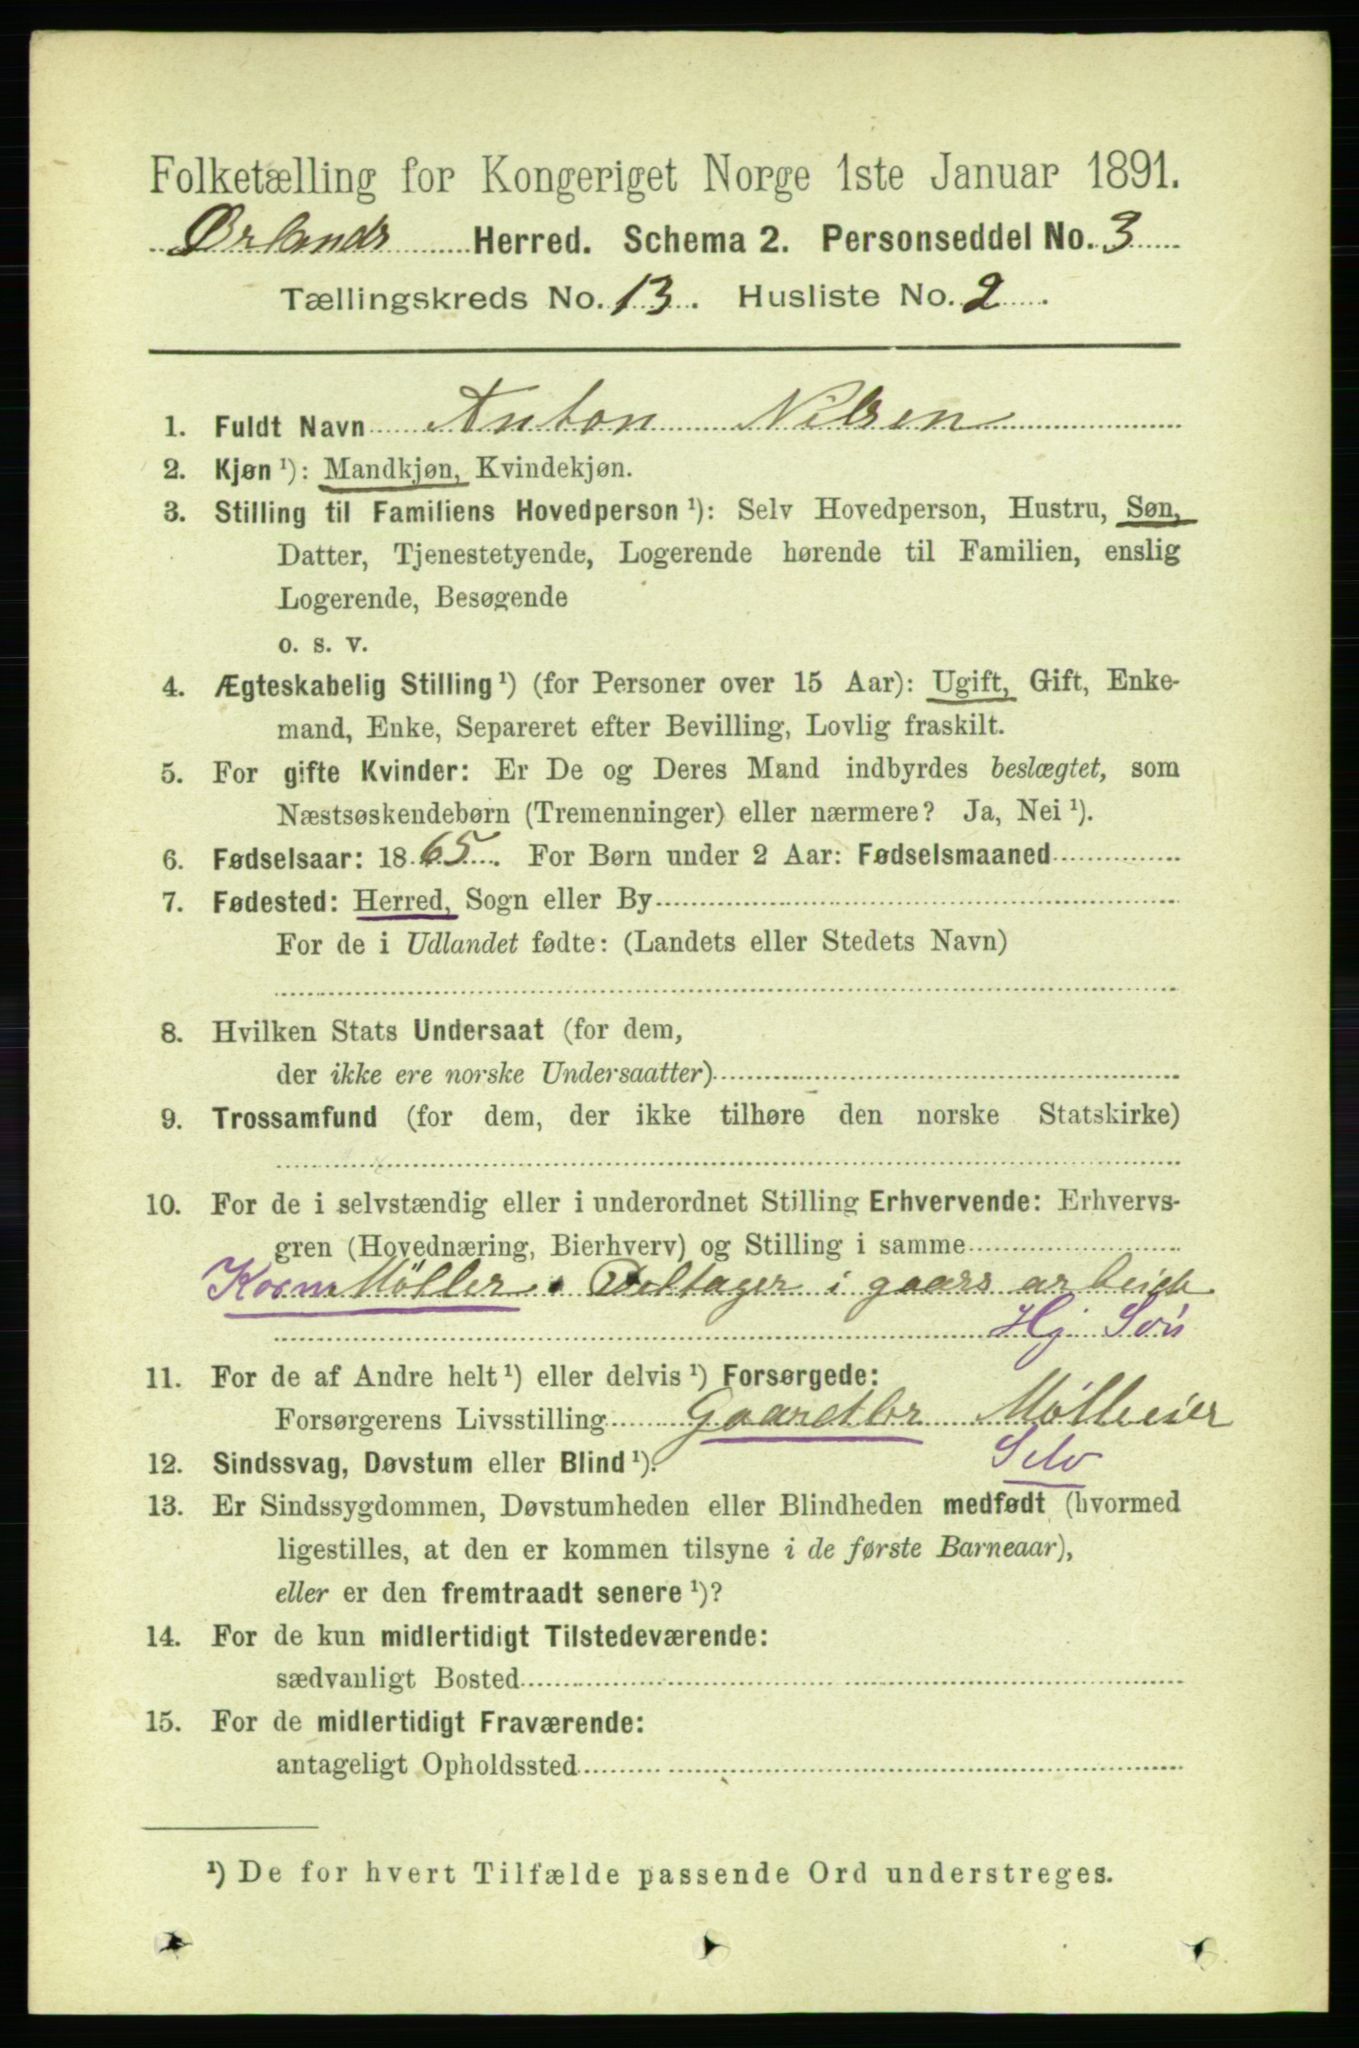 Folketælling for Kongeriget Norge 1ste Januar 1891.
Ørlands Herred. Schema 2. Personseddel No. 3
Tællingskreds No. 13. Husliste No. 2.
1. Fuldt Navn Anton Nilsen
2. Kjøn ¹): Mandkjøn, Kvindekjøn.
3. Stilling til Familiens Hovedperson ¹): Selv Hovedperson, Hustru, Søn,
Datter, Tjenestetyende, Logerende hørende til Familien, enslig
Logerende, Besøgende
o. s. v.
4. Ægteskabelig Stilling ¹) (for Personer over 15 Aar): Ugift, Gift, Enke-
mand, Enke, Separeret efter Bevilling, Lovlig fraskilt.
5. For gifte Kvinder: Er De og Deres Mand indbyrdes beslægtet, som
Næstsøskendebørn (Tremenninger) eller nærmere? Ja, Nei ¹).
6. Fødselsaar: 1865. For Børn under 2 Aar: Fødselsmaaned
7. Fødested: Herred, Sogn eller By
For de i Udlandet fødte: (Landets eller Stedets Navn)
8. Hvilken Stats Undersaat (for dem,
der ikke ere norske Undersaatter)
9. Trossamfund (for dem, der ikke tilhøre den norske Statskirke)
10. For de i selvstændig eller i underordnet Stilling Erhvervende: Erhvervs-
gren (Hovednæring, Bierhverv) og Stilling i samme
Korn Møller. Deltager i gaars arbeide
Hj Søn
11. For de af Andre helt ¹) eller delvis ¹) Forsørgede:
Forsørgerens Livsstilling Gaardbr Mølleeier
12. Sindssvag, Døvstum eller Blind ¹). Selv
13. Er Sindssygdommen, Døvstumheden eller Blindheden medfødt (hvormed
ligestilles, at den er kommen tilsyne i de første Barneaar),
eller er den fremtraadt senere ¹)?
14. For de kun midlertidigt Tilstedeværende:
sædvanligt Bosted
15. For de midlertidigt Fraværende:
antageligt Opholdssted
¹) De for hvert Tilfælde passende Ord understreges.